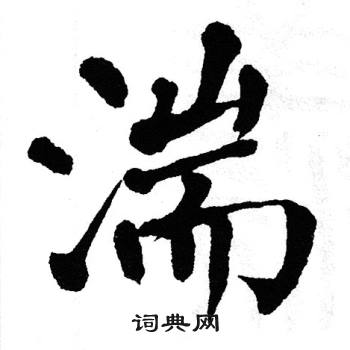 湍
词典网